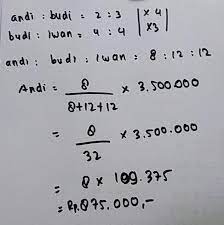 andi : budi = 2 : 3 | x 4 |
budi : Iwan = 4 : 4 | x 3 |
andi : budi : Iwan = 8 : 12 : 12
Andi = 8/(8+12+12) x 3.500.000
= 8/32 x 3.500.000
= 8 x 109.375
= Rp. 875.000,-